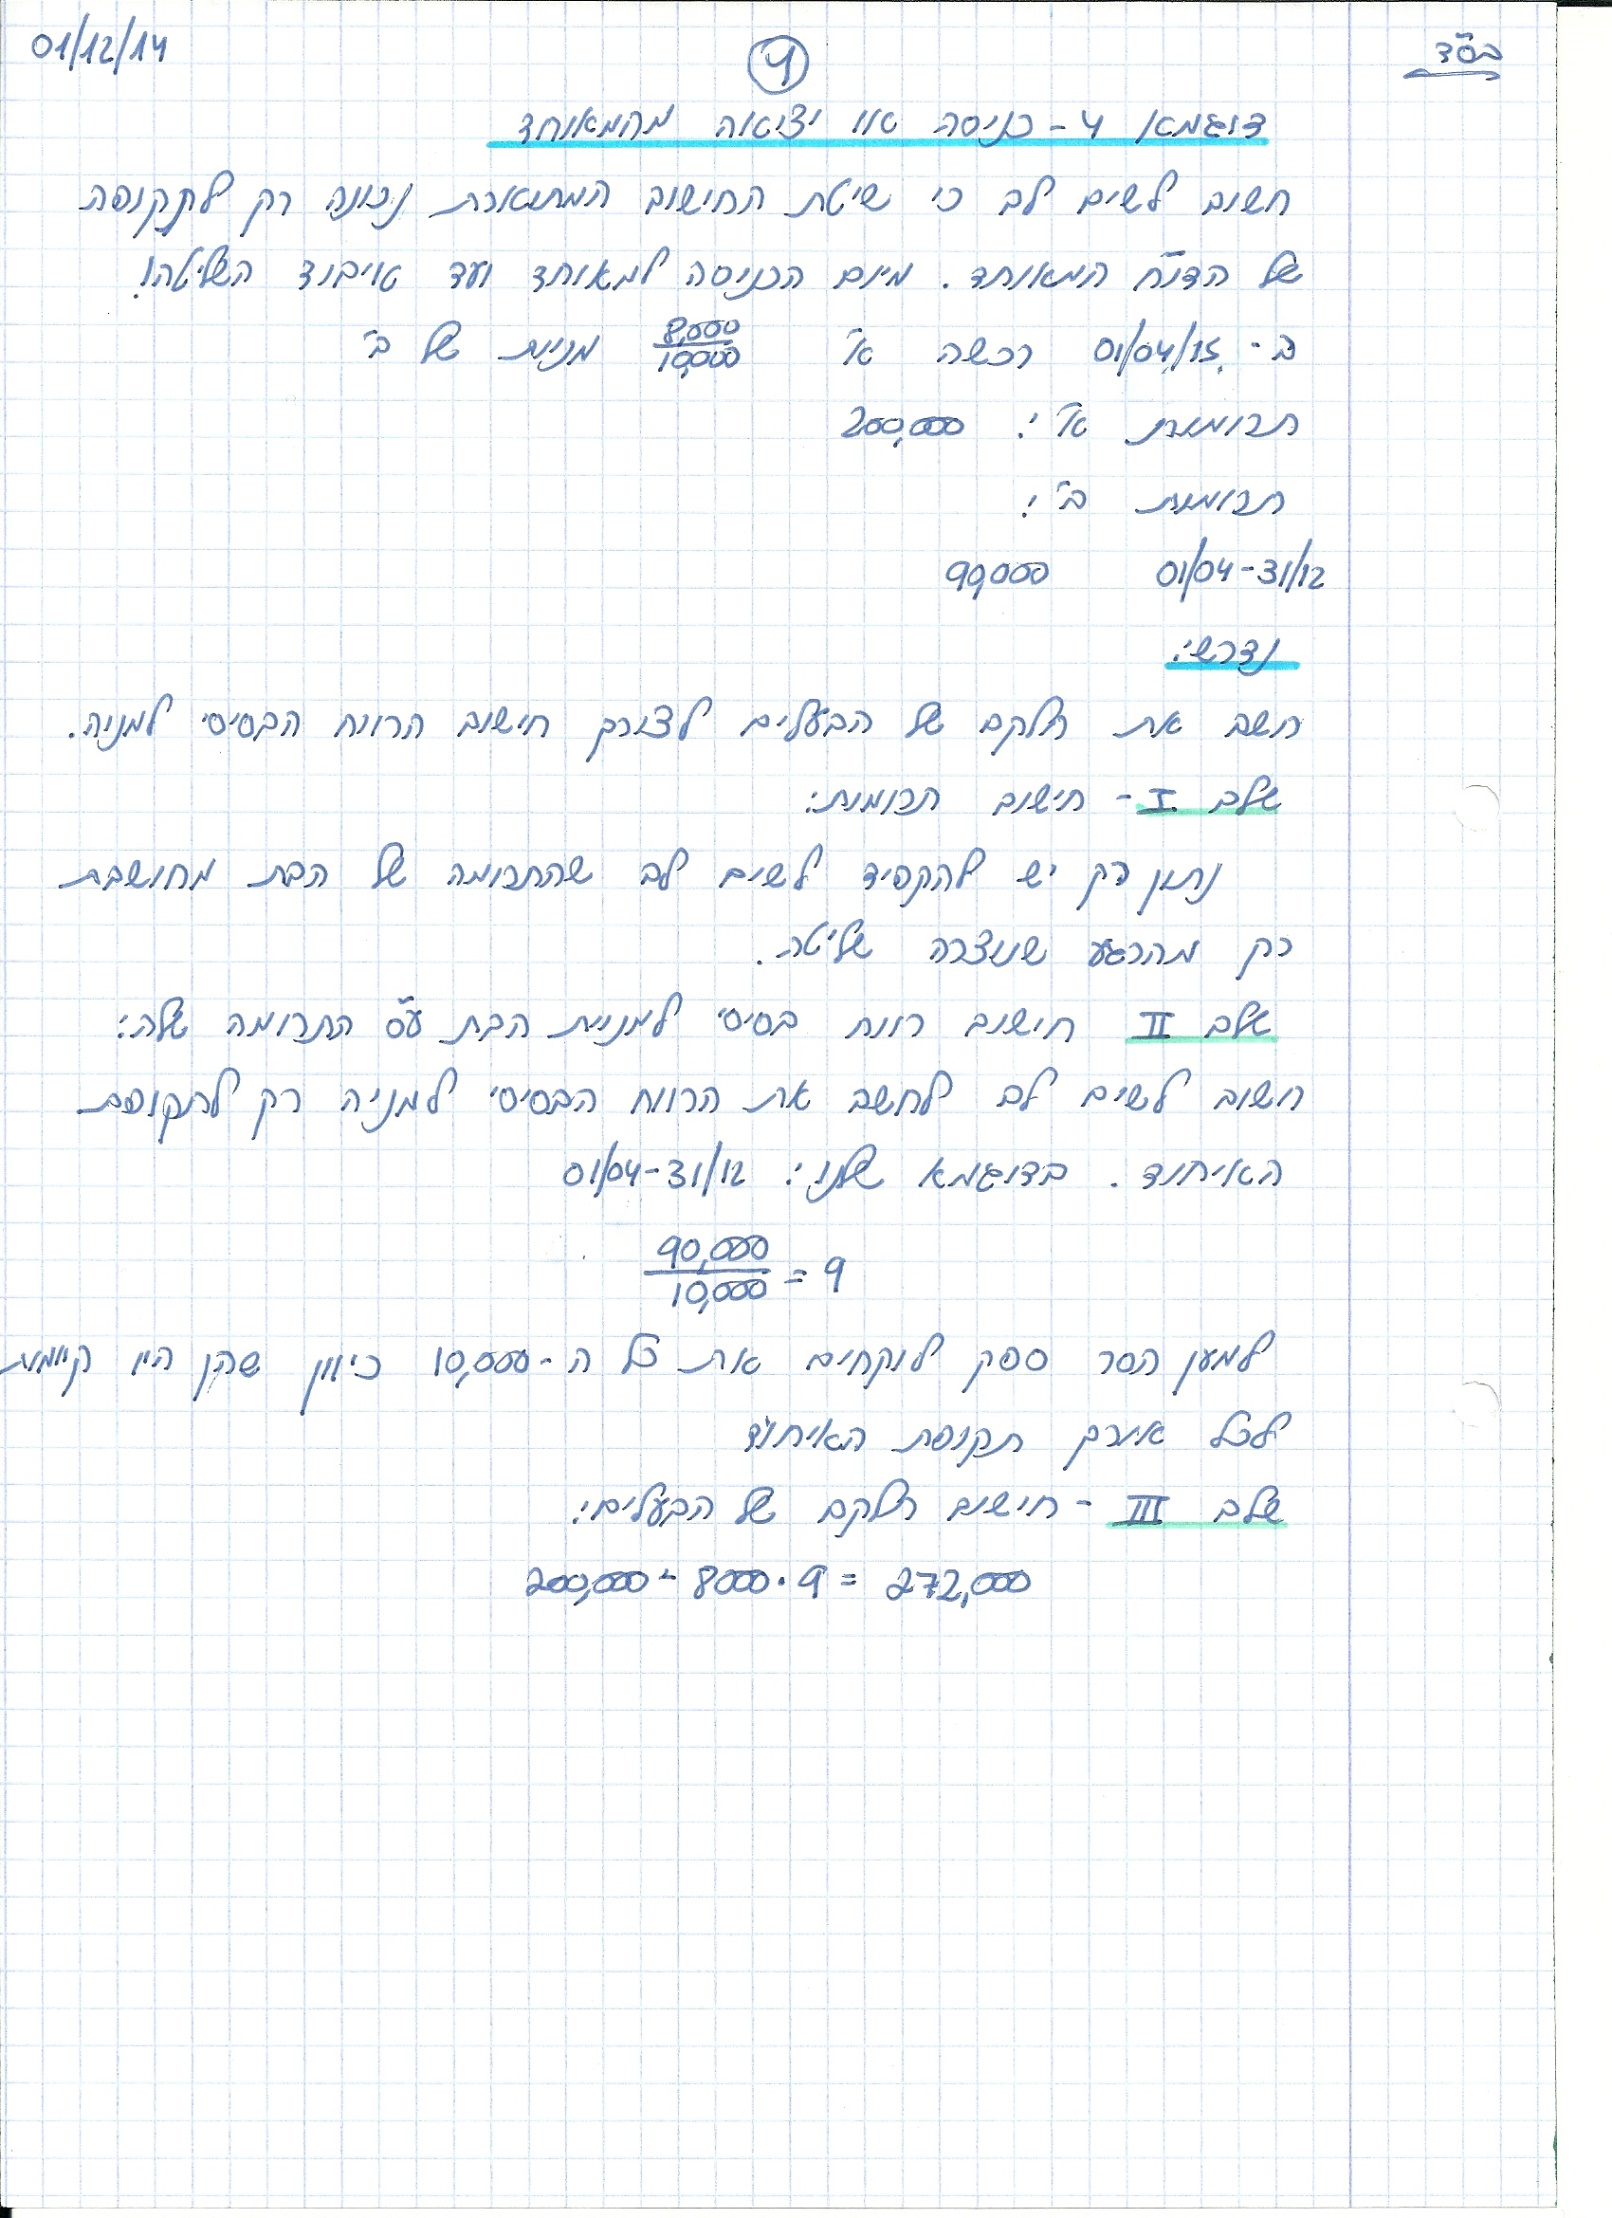 בס"ד
01/12/14
4
דוגמא 4 - כניסה או יציאה מהמאוחד
חשוב לשים לב כי שיטת החישוב המתוארת נכונה רק לתקופה
של הדו"ח המאוחד. מיום הכניסה למאוחד ועד איבוד השליטה!
ב - 01/04/15 רכשה א' 8,000/10,000 מניות של ב'
תרומת א': 200,000
תרומת ב':
01/04-31/12 90,000
נדרש:
חשב את חלקם של הבעלים לצורך חישוב הרווח הבסיסי למניה.
שלב I - חישוב תרומות:
נתון רק יש להקפיד לשים לב שהתרומה של הבת מחושבת
רק מהרגע שנוצרה שליטה.
שלב II חישוב רווח בסיסי למניית הבת ע"ס התרומה שלה:
חשוב לשים לב לחשב את הרווח הבסיסי למניה רק לתקופת
האיחוד. בדוגמא שלנו: 01/04-31/12
90,000/10,000 = 9
למען הסר ספק לוקחים את כל ה-10,000 כיוון שהן היו קיימות
לכל אורך תקופת האיחוד
שלב III - חישוב חלקם של הבעלים:
200,000 - 8000 · 9 = 272,000